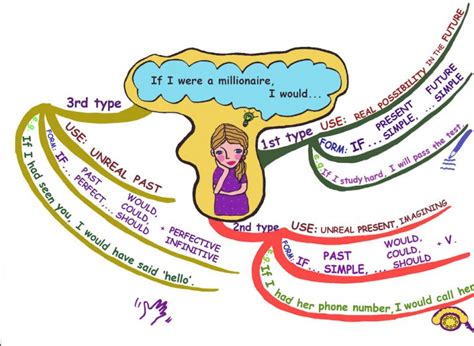 If I were a millionaire,
I would...
1st type
USE: REAL POSSIBILITY IN THE FUTURE
FORM: IF... PRESENT SIMPLE, ... FUTURE SIMPLE
e.g. If I study hard, I will pass the test.
2nd type
USE: UNREAL PRESENT, IMAGINING
FORM: IF... PAST SIMPLE, ... WOULD, COULD, SHOULD + V.
e.g. If I had her phone number, I would call her
3rd type
USE: UNREAL PAST
FORM: IF... PAST PERFECT, ... WOULD, COULD, SHOULD + PERFECTIVE INFINITIVE
e.g. If I had seen you, I would have said 'hello'.